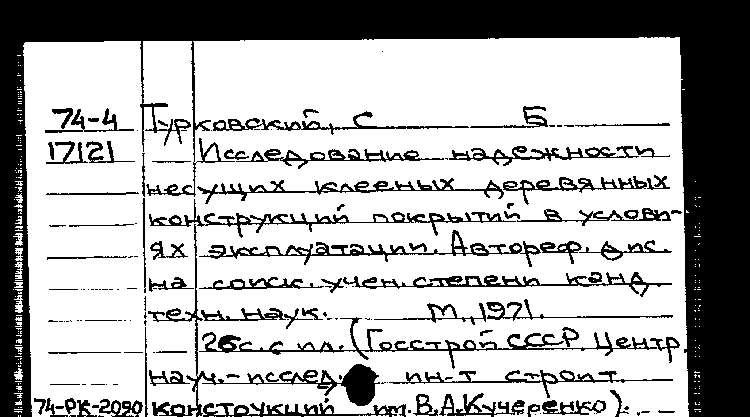 74-4 Турковский, С Б
17121 Исследование надежности
несущих клееных деревянных
конструкций покрытий в услови-
ях эксплуатации. Автореф. дис.
на соиск. учен. степени канд
техн. наук. М., 1971.
26с. с ил. (Госстрой СССР. Центр.
науч.-исслед. ин-т строит.
74-РК-2090 конструкций им. В.А.Кучеренко).